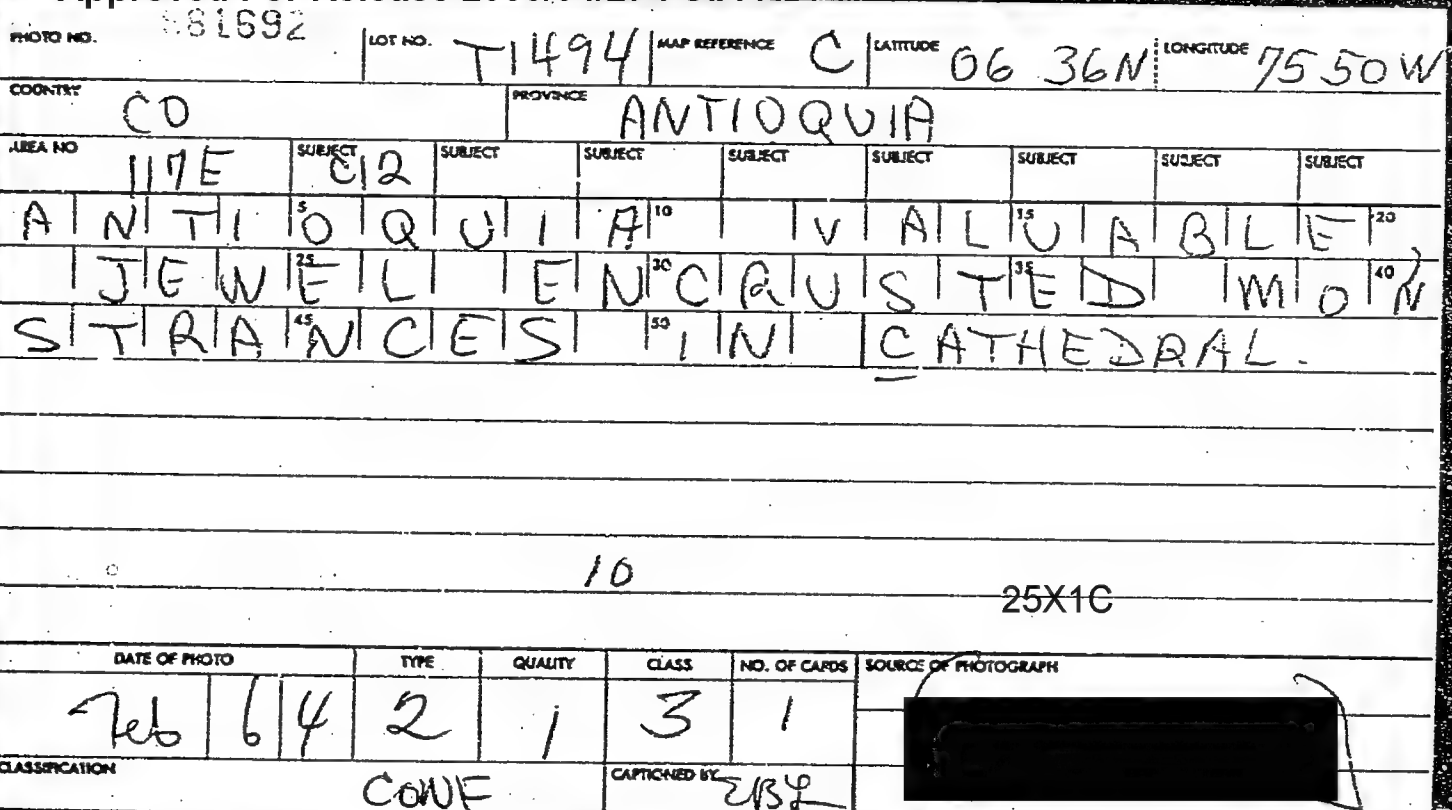 Approved For Release
PHOTO NO. 881692 LOT NO. T1494 MAP REFERENCE C LATITUDE 06 36N LONGITUDE 75 50W
COUNTRY CO PROVINCE ANTIOQUIA
AREA NO 117E SUBJECT C12 SUBJECT SUBJECT SUBJECT SUBJECT SUBJECT SUBJECT SUBJECT
ANTIOQUIA VALUABLE,
5 10 15 20
JEWEL ENCRUSTED MON
25 30 35 40
STRANCES IN CATHEDRAL.
45 50
10
25X1C
DATE OF PHOTO TYPE QUALITY CLASS NO. OF CARDS SOURCE OF PHOTOGRAPH
Feb 64 2 1 3 1
CLASSIFICATION CONF CAPTIONED BY